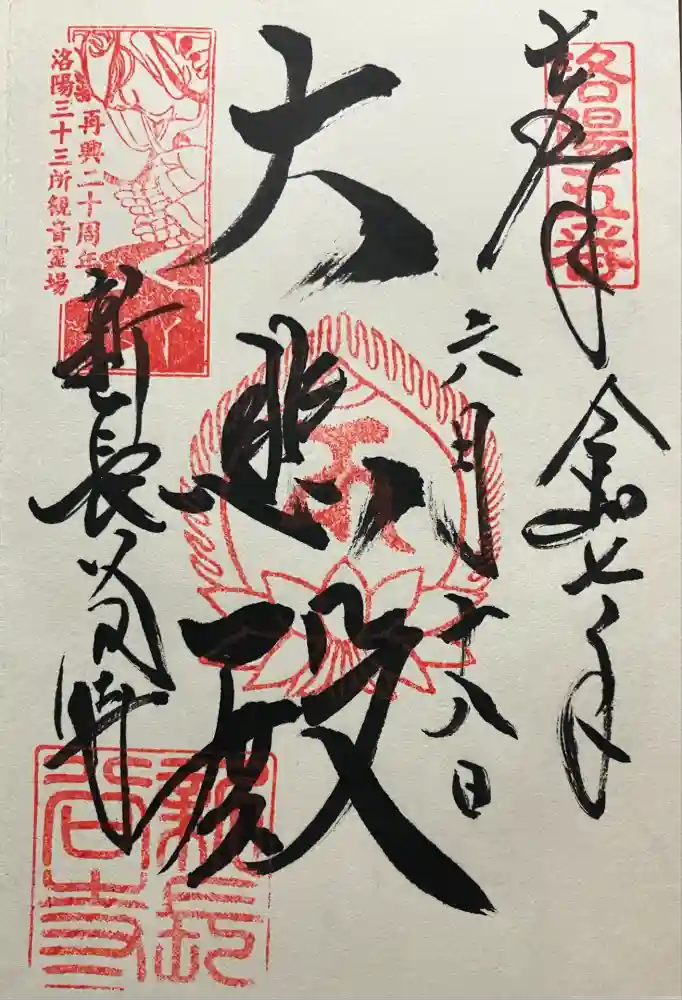 奉拝
洛陽五番
令和七年
六月十八日
大悲殿
再興二十周年
洛陽三十三所観音霊場
新長谷寺
新長谷寺